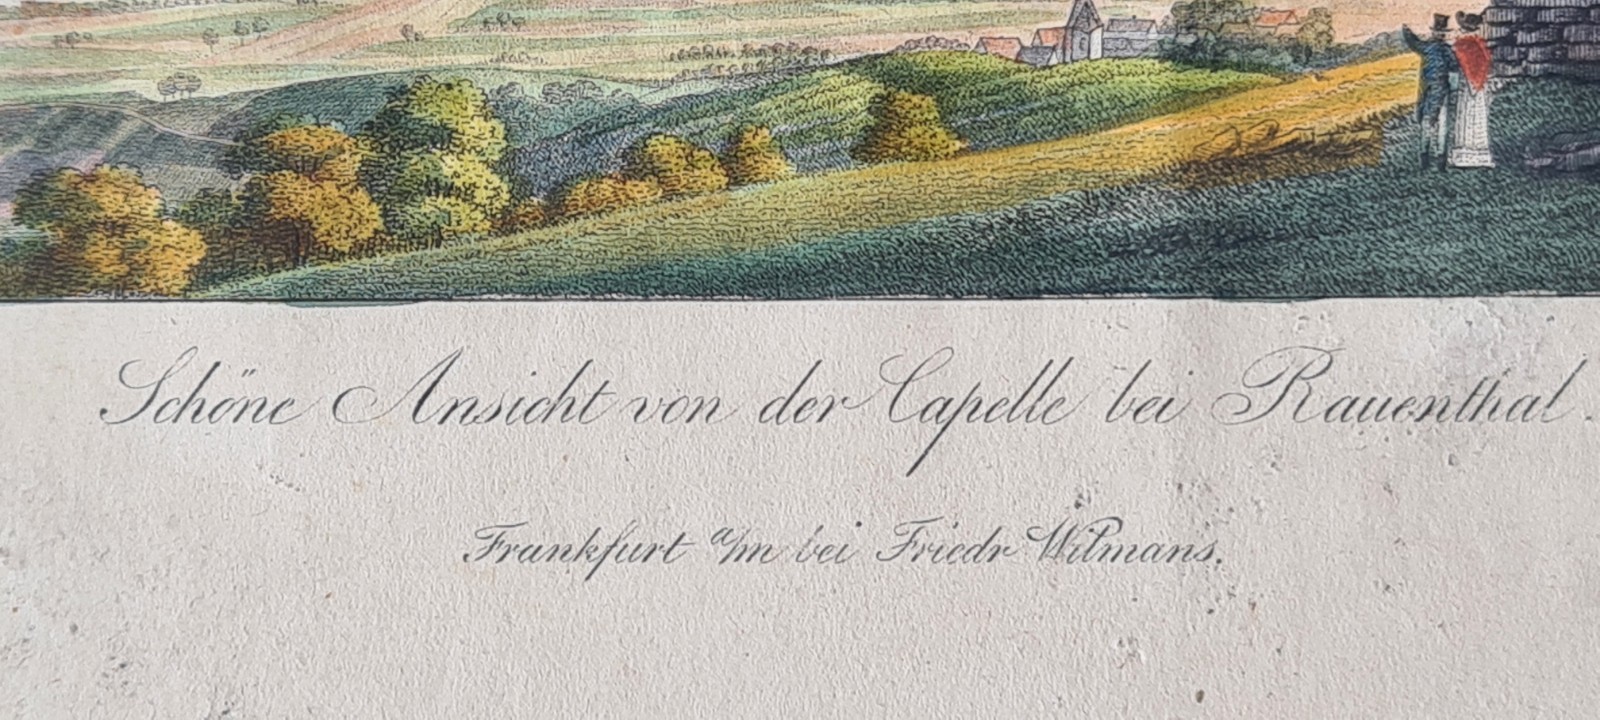 Schöne Ansicht von der Capelle bei Rauenthal.
Frankfurt a/m bei Friedr Wilmans.